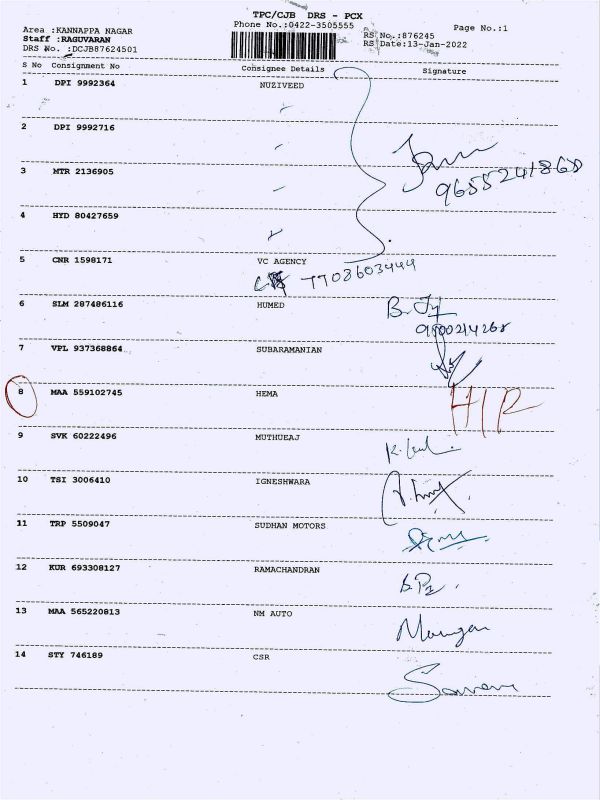 TPC/CJB DRS - PCX
Phone No.:0422-3505555
Page No.:1
Area :KANNAPPA NAGAR
RS No.:876245
Staff :RAGUVARAN
RS Date:13-Jan-2022
DRS No. :DCJB87624501
S No Consignment No Consignee Details Signature
1 DPI 9992364 NUZIVEED
2 DPI 9992716
3 MTR 2136905
9655241868
4 HYD 80427659
5 CNR 1598171 VC AGENCY
7708603444
6 SLM 287486116 HUMED
7 VPL 937368864 SUBARAMANIAN
8 MAA 559102745 HEMA
9 SVK 60222496 MUTHUEAJ
10 TSI 3006410 IGNESHWARA
11 TRP 5509047 SUDHAN MOTORS
12 KUR 693308127 RAMACHANDRAN
13 MAA 565220813 NM AUTO
14 STY 746189 CSR